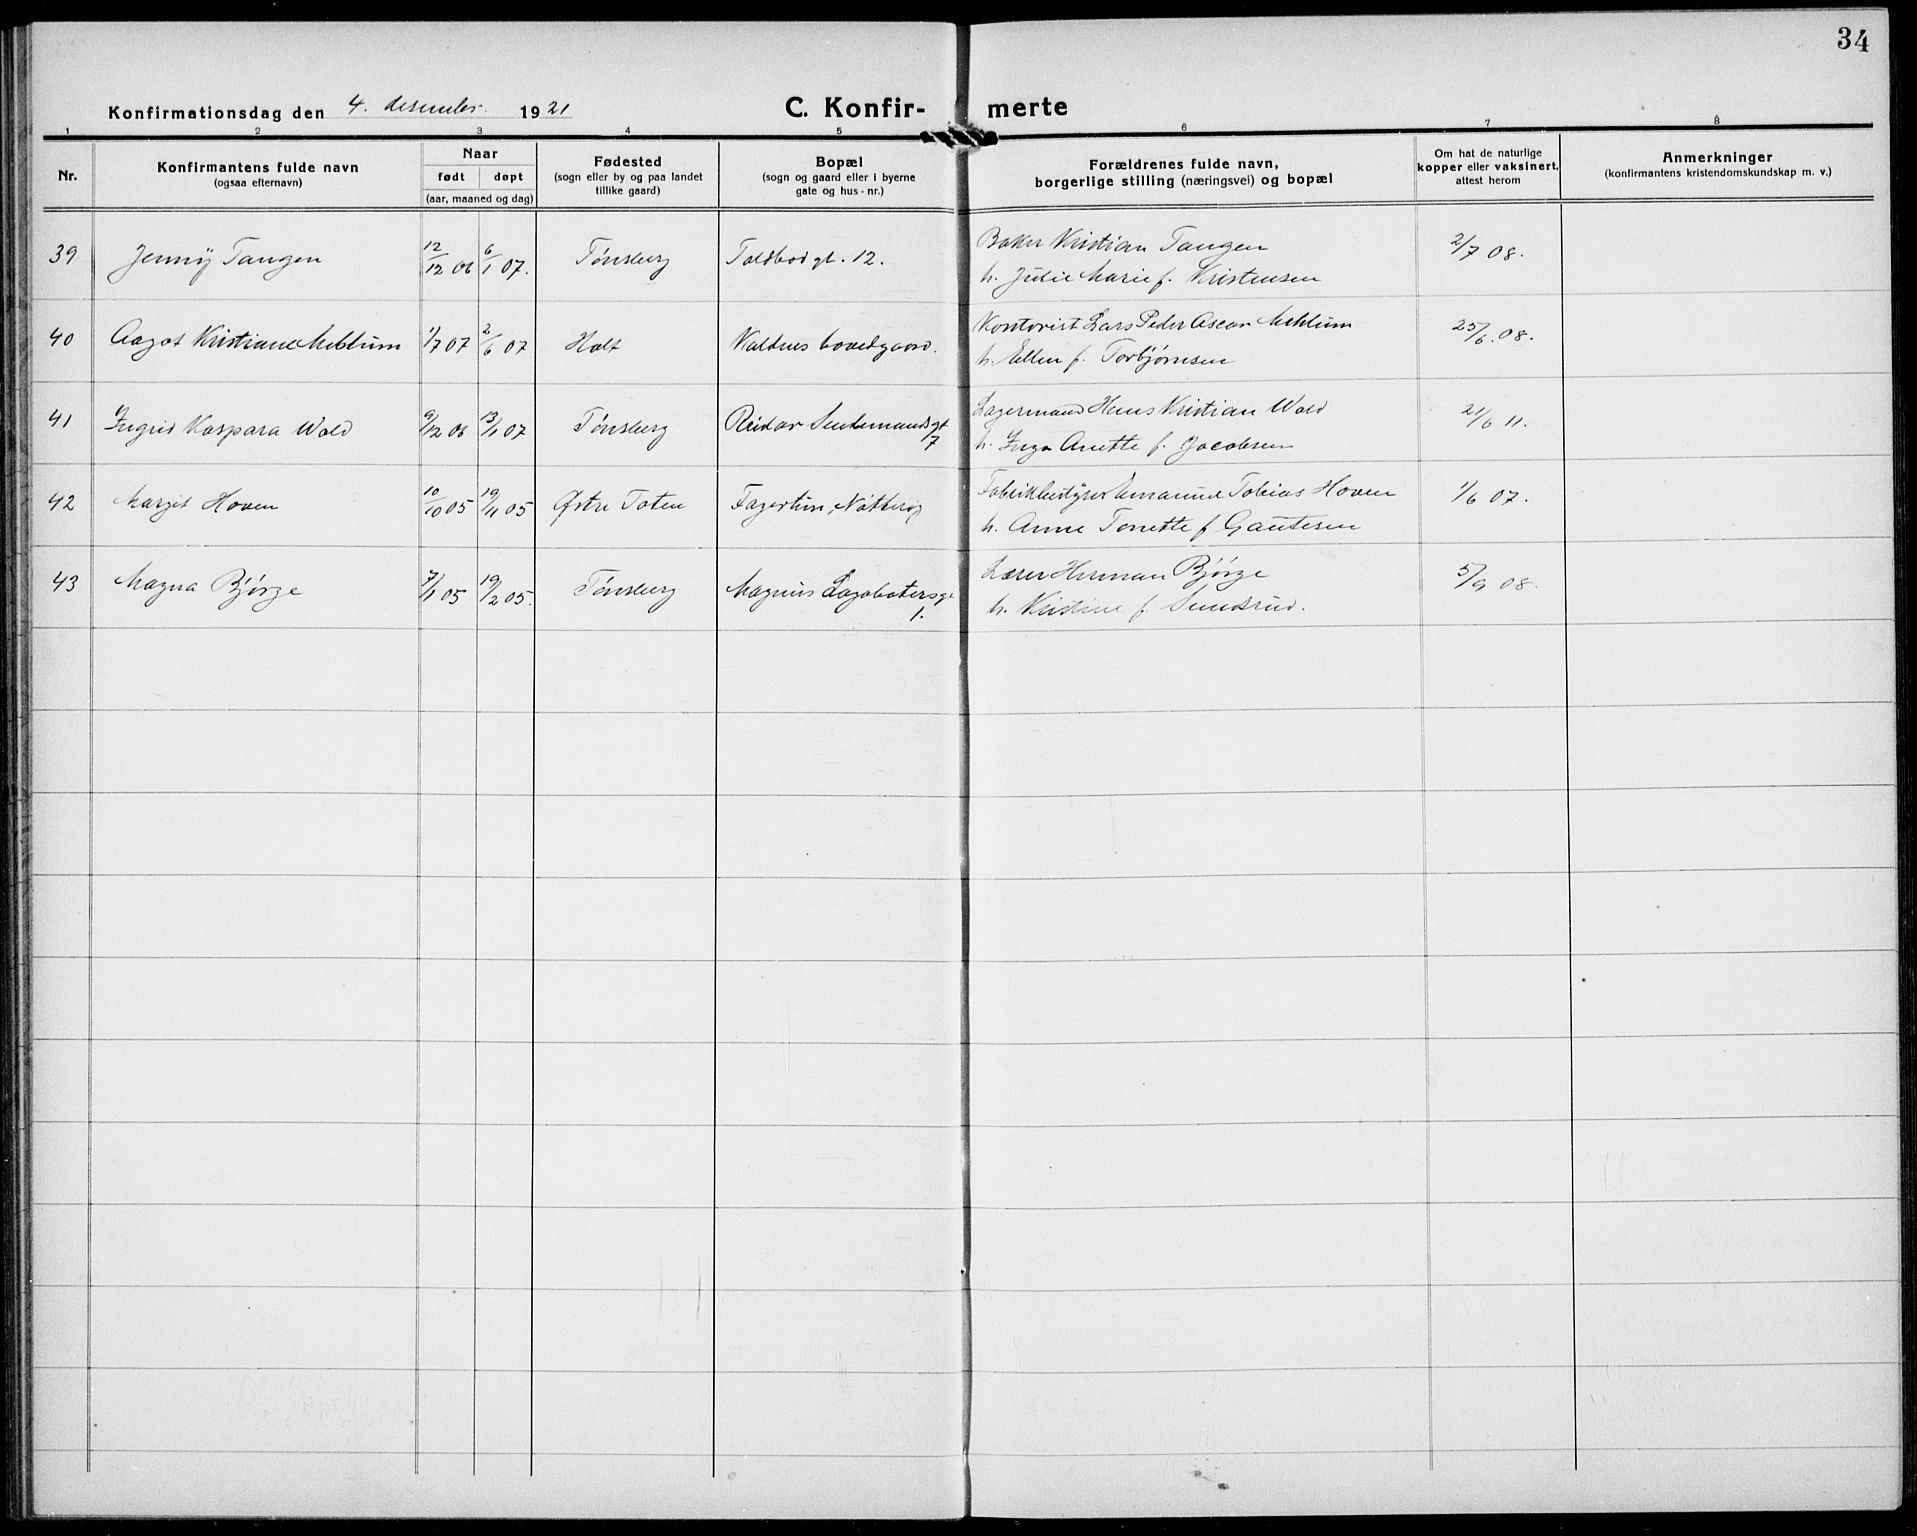 34
Konfirmationsdag den 4. desember 1921 C. Konfir- merte
1 2 3 4 5 6 7 8
Nr.
Konfirmantens fulde navn
(ogsaa efternavn)
Naar
født døpt
(aar, maaned og dag)
Fødested
(sogn eller by og paa landet
tillike gaard)
Bopæl
(sogn og gaard eller i byerne
gate og hus-nr.)
Forældrenes fulde navn,
borgerlige stilling (næringsvei) og bopæl
Om hat de naturlige
kopper eller vaksinert,
attest herom
Anmerkninger
(konfirmantens kristendomskundskap m. v.)
39 Jenny Tangen 12/12 06 6/1 07. Tønsberg Toldbodgt. 12. Baker Kristian Tangen 2/7 08.
h. Julie Marie f. Kristensen
40 Aagot Kristiane Mehlum 1/7 07 2/6 07 Holt Kaldnes hovedgaard. Kontorist Lars Peder Ascar Mehlum 25/6. 08.
h. Ellen f. Torbjørnsen
41 Ingrid Kaspara Wold 9/12 06 13/1 07 Tønsberg Reidar Sendemandsgt 7 Lagermand Hans Kristian Wold 21/6 11.
h. Inga Anette f. Jacobsen
42 Margit Hoven 10/10 05 19/11 05 Østre Toten Fagertun, Nøtterø Fabrikbestyrer Emanuel Tobias Hoven 1/6 07.
h. Anne Tonette f Gautesen
43 Magna Bjørge 7/1 05 19/2 05. Tønsberg Magnus Lagabøtersgt 1. Læser Herman Bjørge 5/9 08.
h. Kristine f. Sundsrud.